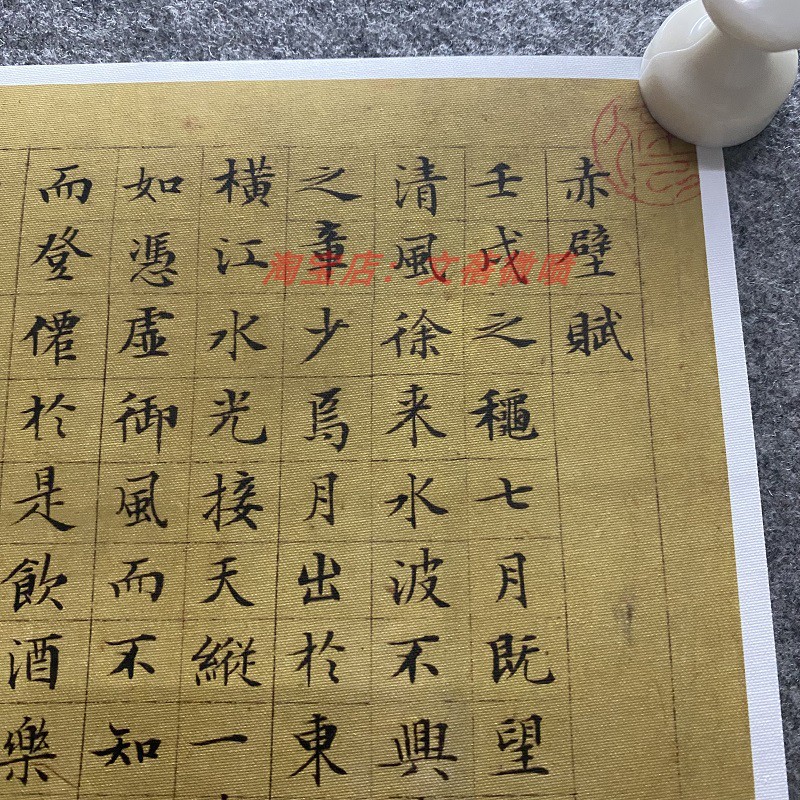 赤壁賦
壬戌之龝七月既望
清風徐来水波不興
之章少焉月出於東
橫江水光接天縱一
如憑虛御風而不知
而登僊於是飲酒樂
淘宝店：文岩微喷